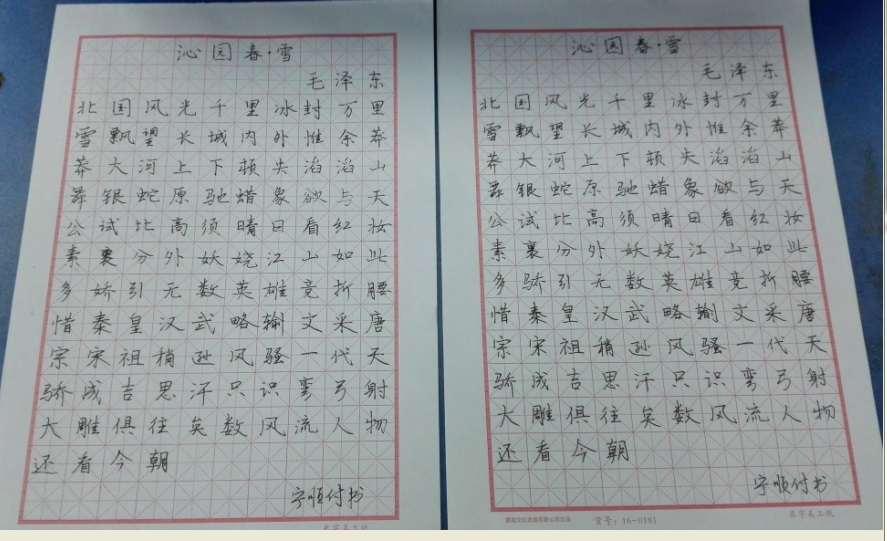 沁园春·雪
毛泽东
北国风光千里冰封万里
雪飘望长城内外惟余莽
莽大河上下顿失滔滔山
舞银蛇原驰蜡象欲与天
公试比高须晴日看红妆
素裹分外妖娆江山如此
多娇引无数英雄竞折腰
惜秦皇汉武略输文采唐
宗宋祖稍逊风骚一代天
骄成吉思汗只识弯弓射
大雕俱往矣数风流人物
还看今朝
宁顺付书
沁园春·雪
毛泽东
北国风光千里冰封万里
雪飘望长城内外惟余莽
莽大河上下顿失滔滔山
舞银蛇原驰蜡象欲与天
公试比高须晴日看红妆
素裹分外妖娆江山如此
多骄引无数英雄竞折腰
惜秦皇汉武略输文采唐
宗宋祖稍逊风骚一代天
骄成吉思汗只识弯弓射
大雕俱往矣数风流人物
还看今朝
宁顺付书
货号：16-0181